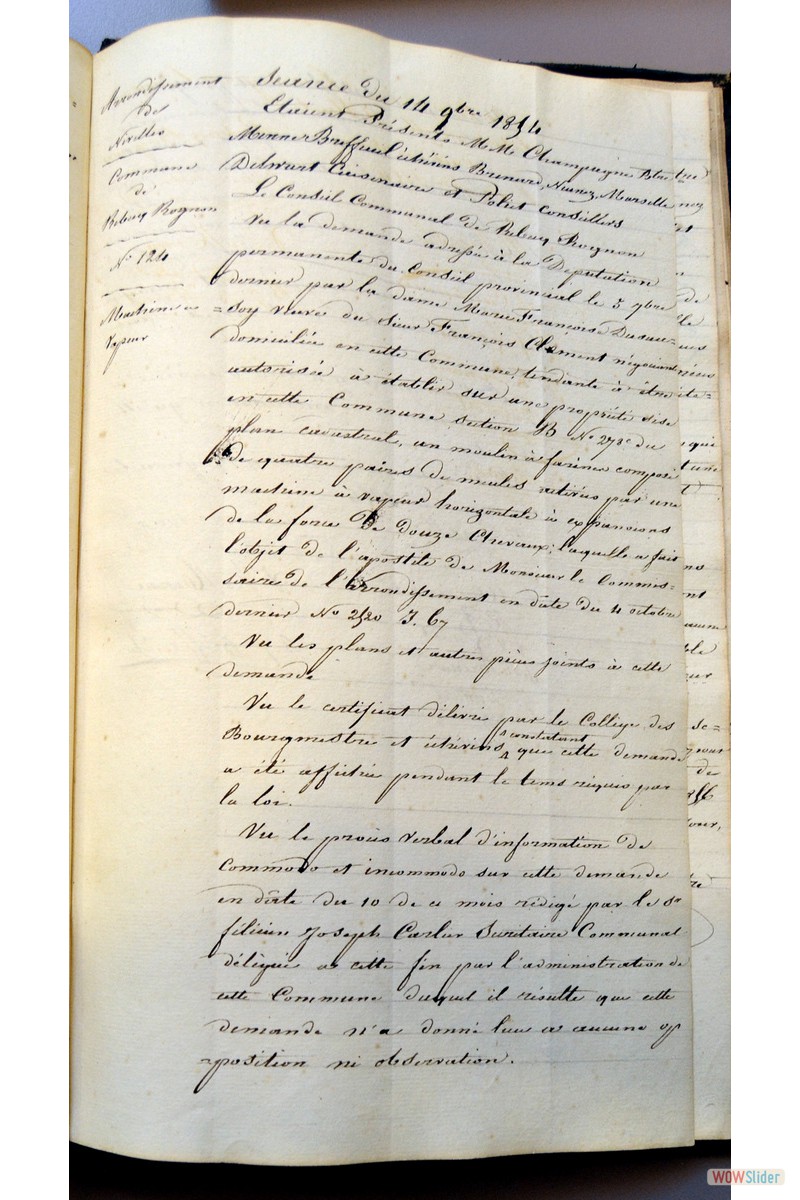 Arrondissement
de
Nivelles
Commune
de
Rebecq Rognon
N° 124
Machine a
vapeur
Séance du 14 9bre 1854
Etaient Présents M.M. Champagne Bta
Minner Breffeuil échévins Brenard, Nuanez, Marselle
Delwart Cuisenaire et Polet Consillers
Le Conseil Communal de Rebecq Rognon
Vu la demande adressée à la Deputation
permanente du Conseil provincial le 5 7bre
dernier par la dame Marie Françoise
=soy veuve du Sieur François Clement négociant
domiciliée en cette Commune, tendante à être
autorisée à établir sur une propriété sise
en cette Commune section B N° 278c du
plan cadastral, un moulin à farines composé
de quatre paires de meules activés par une
machine à vapeur horizontale à expansions
de la force de douze Chevaux; laquelle a fait
l'objet de l'apostile de Monsieur le Commis=
saire de l'arrondissement en dâte du 4 octobre
dernier N° 2520 J. 67
Vu les plans et autres pièces joints à cette
demande
Vu le certificat délivré par le Collège des
Bourgmestre et échévins constatant que cette demande
a été affichée pendant le tems réquis par
la loi.
Vu le procès verbal d'information de
Commodo et incommodo sur cette demande
en dâte du 10 de ce mois rédigé par le Sr
félicien Joseph Carlier Sécrétaire Communal
délégué a cette fin par l'administration de
cette Commune duquel il résulte que cette
demande n'a donné lieu a aucune op
=position ni observation.
WOWSlider